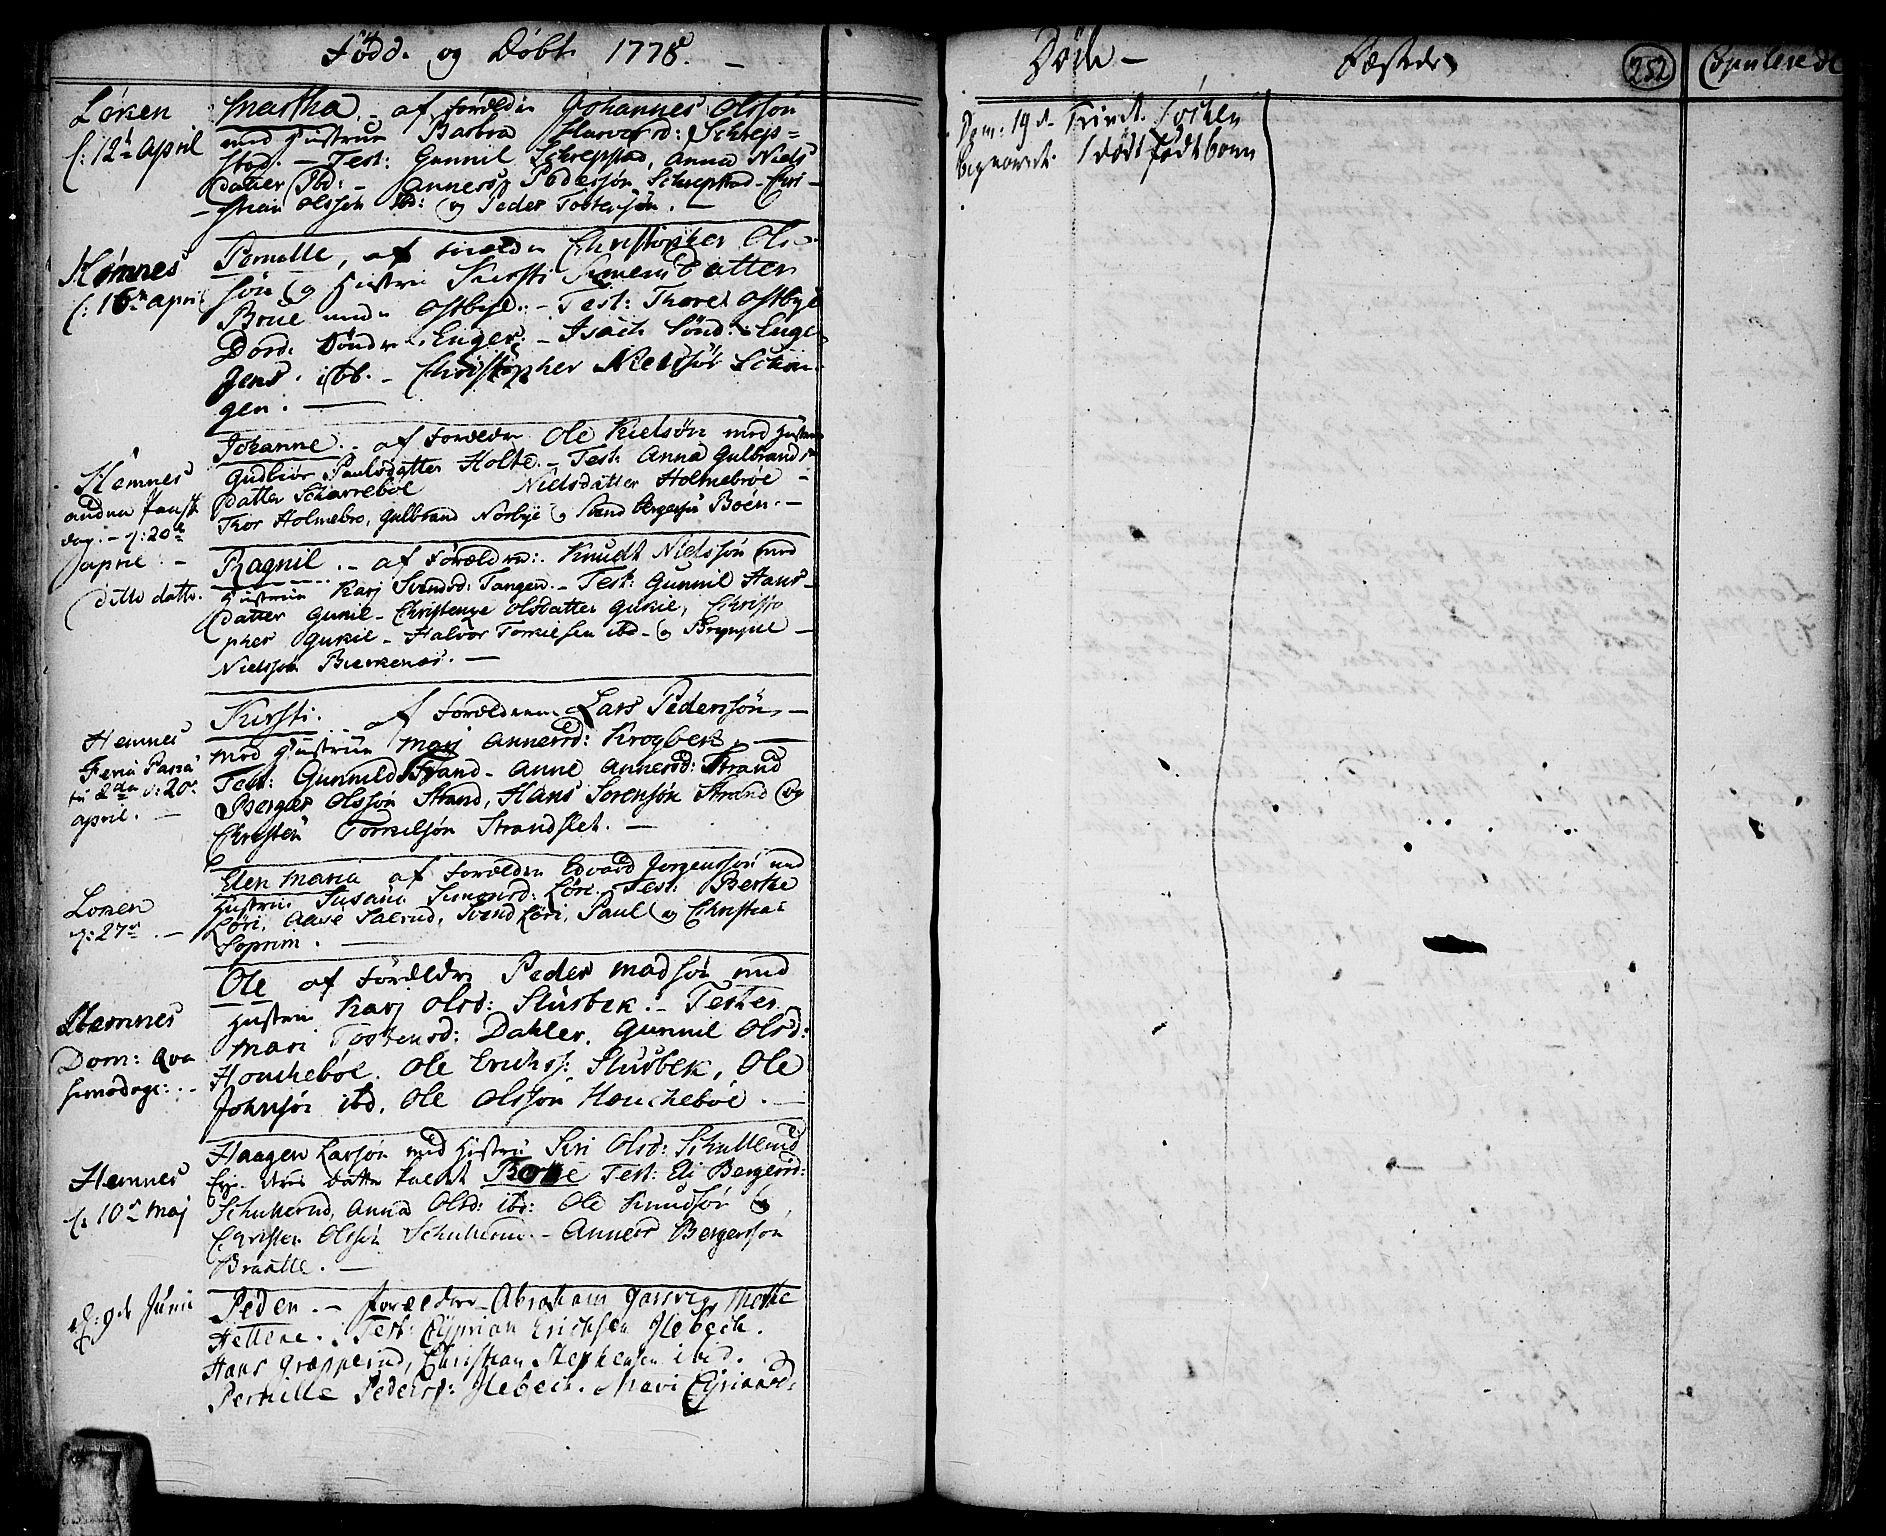 Födde og Döbte 1778.
Løken
f: 12te April
Martha. - af foreldre Johannes Olssøn
med Hustrue Barbra Halvorsd: Schrep=
stad. - Test: Gunnil Schrepstad, Anna Niels
Datter ibd: - Anners Pederssøn Schrepstad - Chri-
-stian Olssøn ibd: og Peder Tostensøn.
Hemnes
f: 16de April
Pernille, af foreldre Christopher Ols-
søn og Hustrue Kirsti Datter
Brue under Ostbye. - Test: Thore Ostbye
Dord. Søndre Enger: - Isach Sönd: Enge
Jens ibd. - Christopher Nielssøn
gen.
Hemnes
anden Paaske
dag. - f: 20de
April. -
Johanne. - af foreldre Ole Kielsøn med Hustrue
Gudbiør Paulsdatter Holte. - Test: Anna Gulbrands
Datter Schiarrebøe Nielsdatter Holmebroe -
Thor Holmebro, Gulbrand Norbye og Svend Bergersøn Boen. -
ditto datto.
Ragnil. - af foreldre: Knudt Nielssøn med
Hustrue Karj Svendsd: Tangen. - Test: Gunnil Hans-
Datter Gukil - Christenze Olsdatter Gukil, Christo
pher Gukil - Halvor Torkielsen ibd - og Brynjul -
Nielssøn Bierkenes. -
Hemnes
Feriâ Pascha
tis 2da f: 20de
April. -
Kirsti. af Foreldrene Lars Pederssøn, -
med Hustrue Marj Annersd: Krogbek. -
Test: Gunnild Strand - Anne Annersd: Strand
Berger Olssøn Strand, Hans Sorensøn Strand og
Christen Torkilsøn Strandslet. -
Loken
f: 27de. -
Elen Maria af foreldre Edvard Jorgenssøn med
Hustrue Susana Simensd: Løri. Test: Berthe
Løri, Aase Saerud, Svend Løri, Paul og Christian
Soprim. -
Hemnes
Dom: Qva
simodoge: -
Ole af foreldre Peder Madsøn med
Hustrue Karj Olsd: Slusbek. - Testes
Mari Tostensd: Dahler, Gunnil Olsd:
Houchebøe. Ole Erichss: Slusbek, Ole
Johnsøn ibd, Ole Olssøn Houchebøe. -
Hemnes
f: 10de Maj
Haagen Larsøn med Hustrue Siri Olsd: Schullerud
Datter kaldet Berthe Test: Eli Bergersd:
Schullerud, Anna Olsd: ibd: Ole Knudsøn og
Christen Olssøn Schullerud. - Anners Bergerssøn
Braatte. -
f: 9de Junii
Peder. - foreldre - Abraham Garsvig Merthe
Hellene. Test: Cyprian Erichsen Ilebech.
Hans Græpperud, Christian Stephensen ibid.
Pernille Pedersd: Ilebech. Mari Cypriansd:
Döde -
Dom: 19 p. Trinit. Løchen
begravet. 1 dødt født barn
Fæstede
252
Copulerede